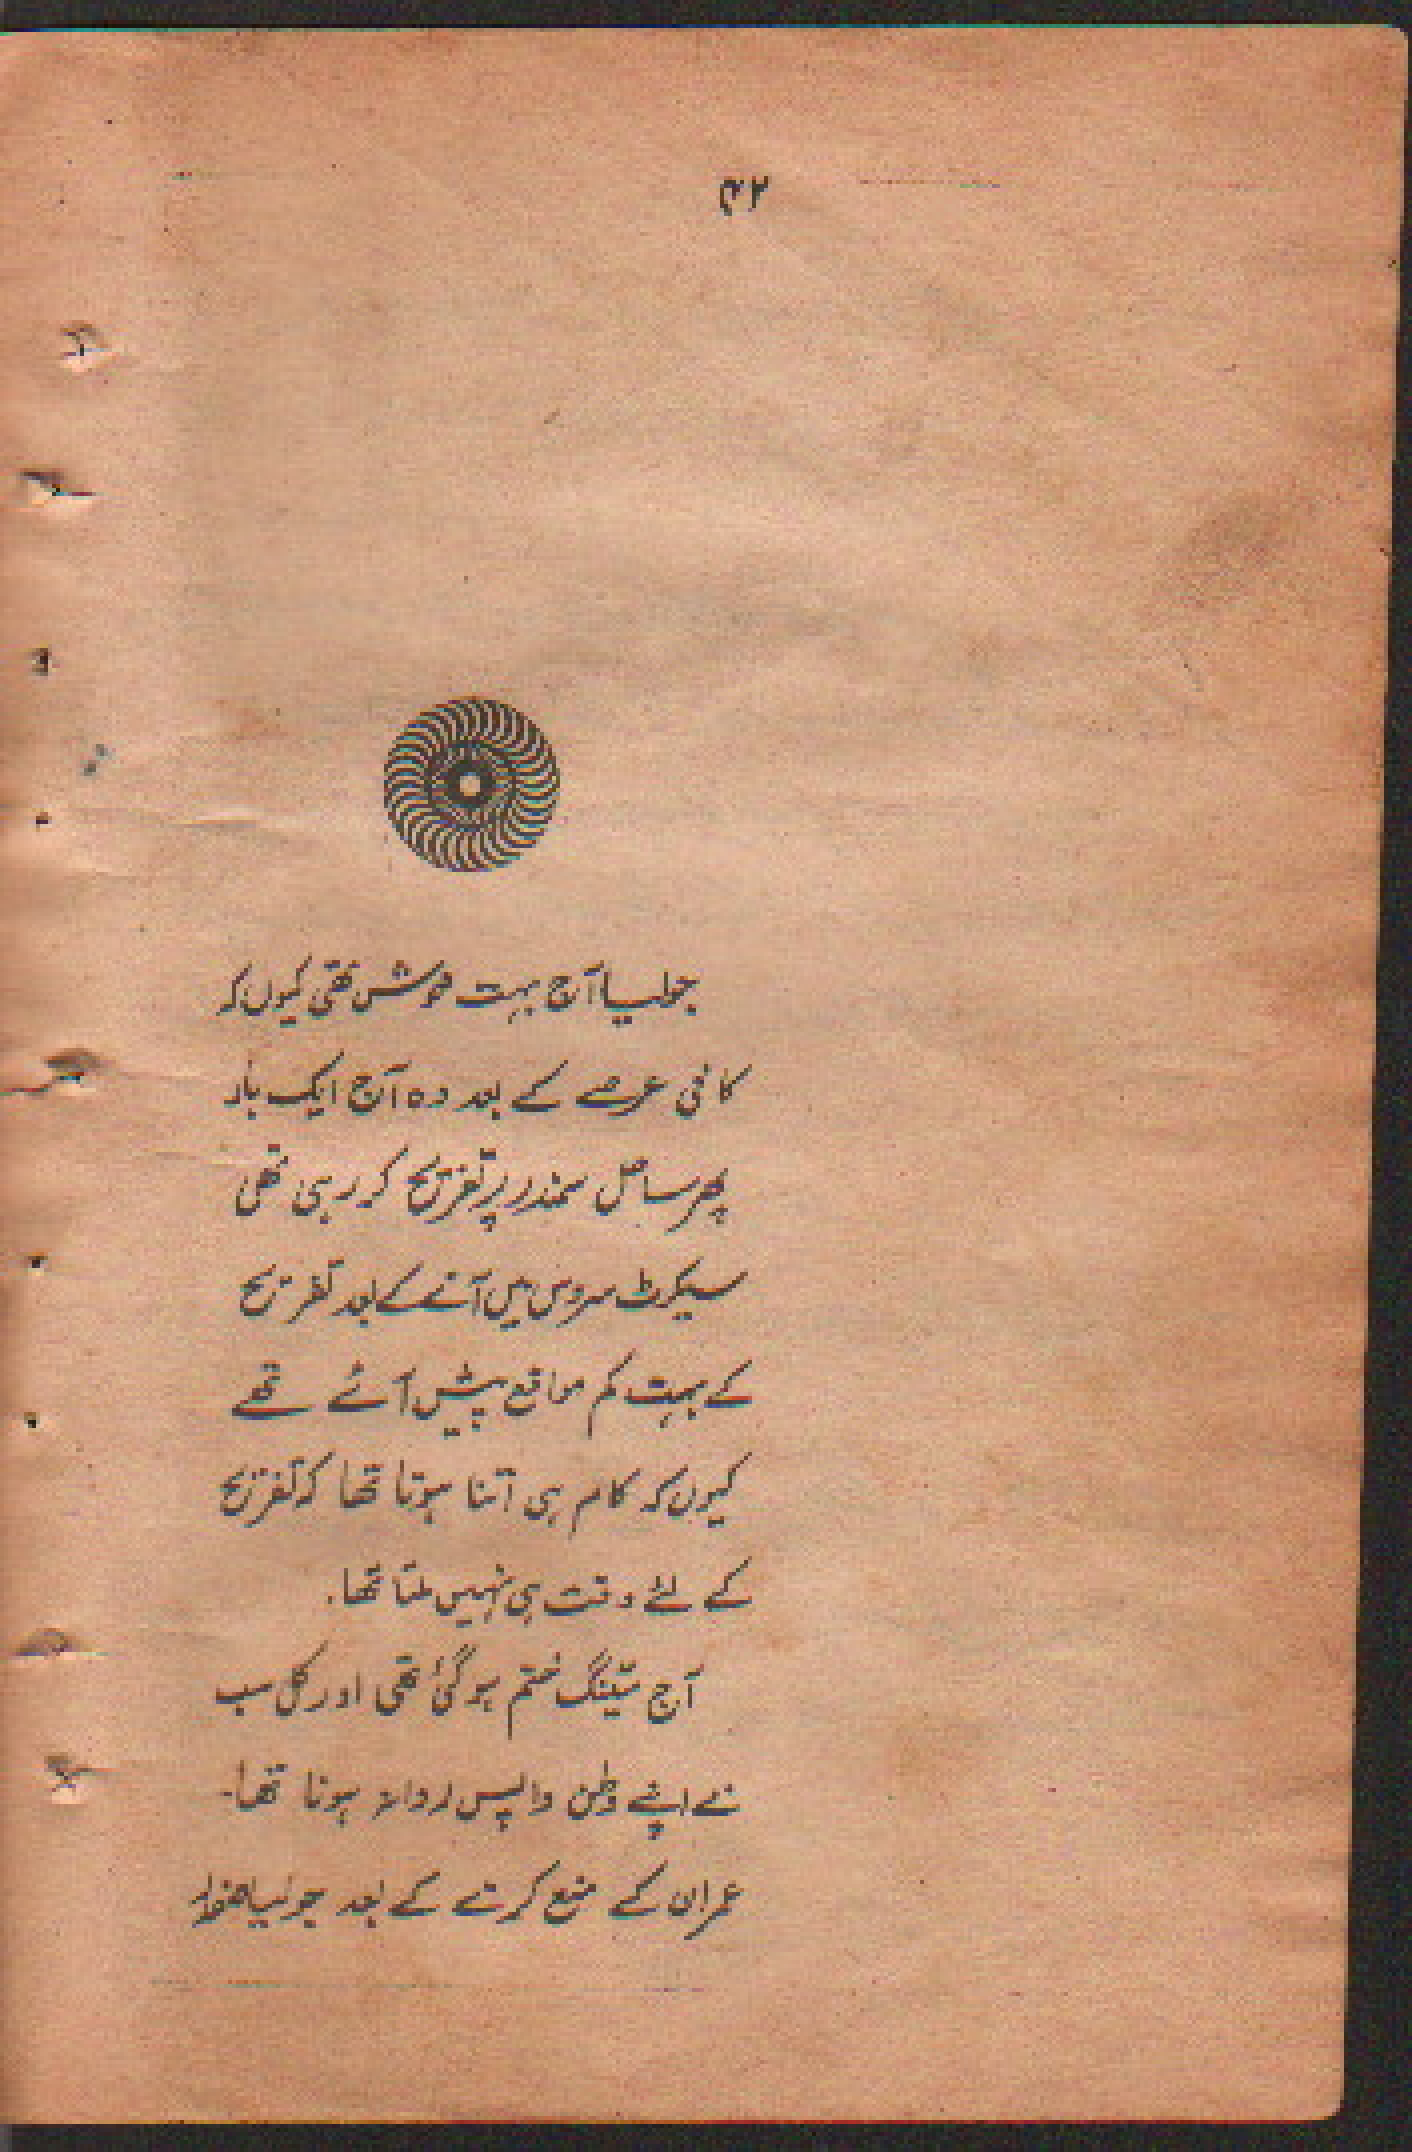 ۴۲
جولیا آج بہت خوش تھی کیوں کہ
کافی عرصے کے بعد وہ آج ایک بار
پھر ساحل سمندر پر تفریح کر رہی تھی
سیکرٹ سروس میں آنے کے بعد تفریح
کے بہت کم مواقع پیش آئے تھے
کیوں کہ کام ہی اتنا ہوتا تھا کہ تفریح
کے لئے وقت ہی نہیں ملتا تھا۔
آج میٹنگ ختم ہو گئی تھی اور کل سب
نے اپنے وطن واپس روانہ ہونا تھا۔
عمران کے منع کرنے کے بعد جولیا صفدر